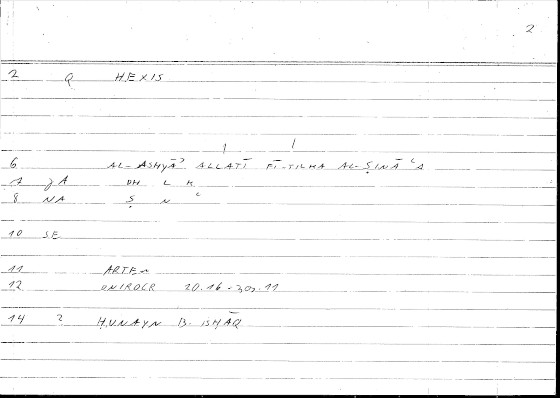 2
2 Q HEXIS
6 AL-ASHYĀʾ ALLATĪ FĪ-TILKA AL-ṢINĀʿA
7 JA DH L K
8 NA Ṣ N ʿ
10 SE
11 ARTEM
12 ONIROCR 20.16-
14 2 ḤUNAYN B. ISḤĀQ